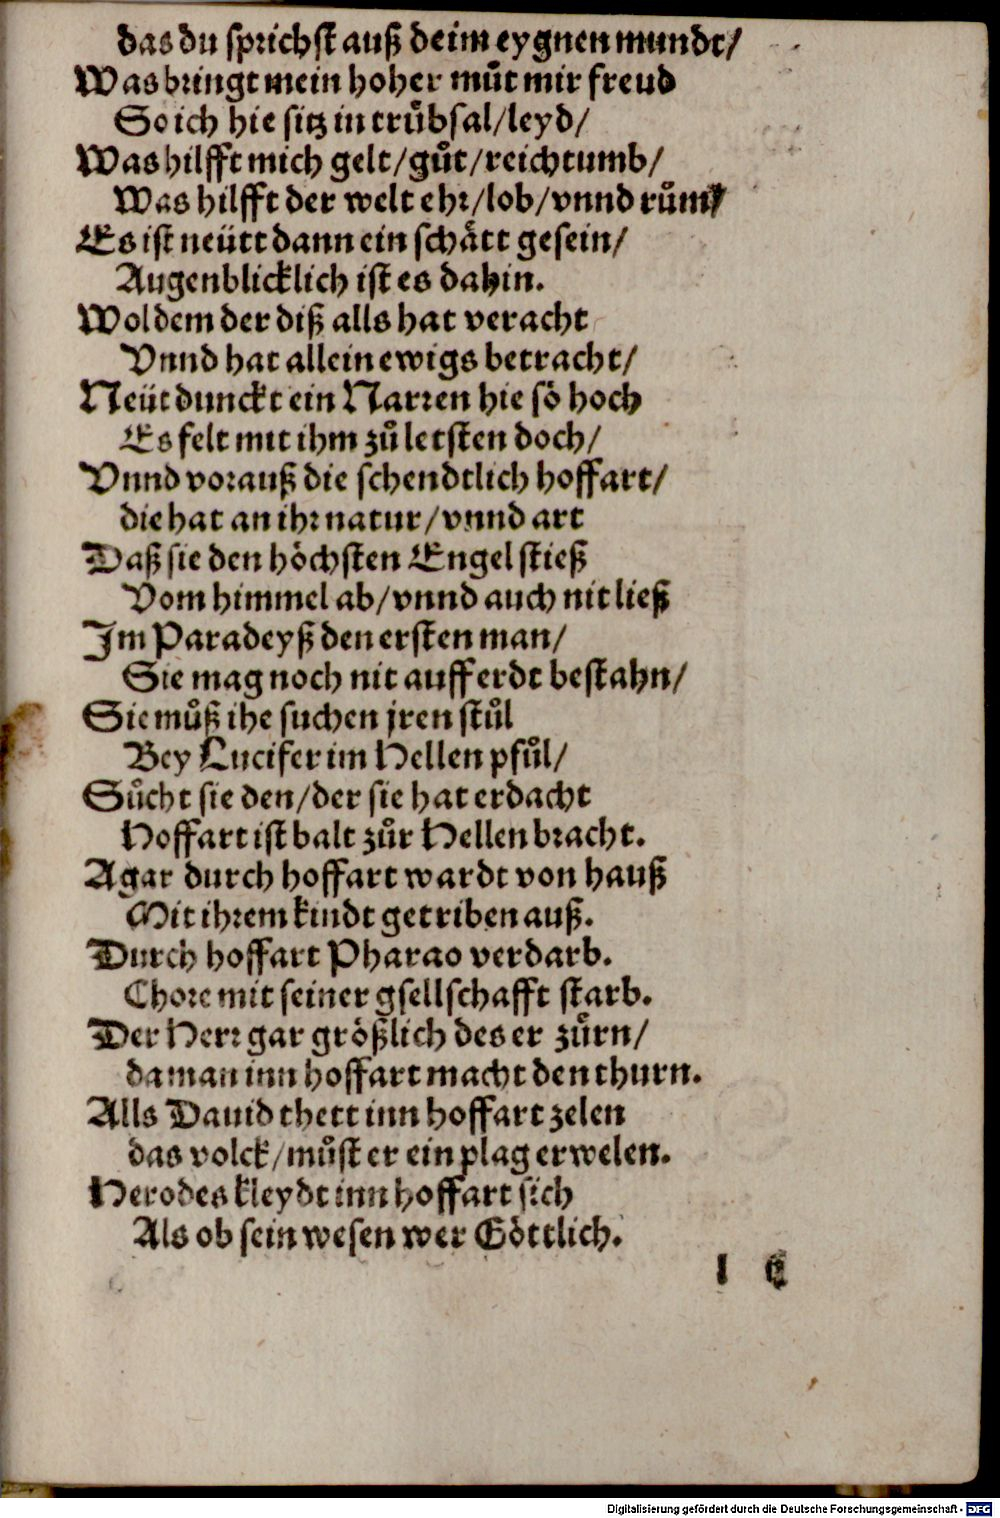 das du sprichst auß deim eygnen mundt/
Was bringt mein hoher můt mir freud
So ich hie sitz in trůbsal/leyd/
Was hilfft mich gelt/gůt/reichtumb/
Was hilfft der welt ehr/lob/vnnd rům/
Es ist neütt dann ein schått gesein/
Augenblicklich ist es dahin.
Wol dem der diß alls hat veracht
Vnnd hat allein ewigs betracht/
Neüt dunckt ein Narren hie so hoch
Es felt mit ihm zů letsten doch/
Vnnd vorauß die schendtlich hoffart/
die hat an ihr natur/vnnd art
Daß sie den höchsten Engel stieß
Vom himmel ab/vnnd auch nit ließ
Im Paradeyß den ersten man/
Sie mag noch nit auff erdt bestahn/
Sie můß ihe suchen jren stůl
Bey Lucifer im Hellen pfůl/
Sůcht sie den/der sie hat erdacht
Hoffart ist balt zůr Hellen bracht.
Agar durch hoffart wardt von hauß
Mit ihrem kindt getriben auß.
Durch hoffart Pharao verdarb.
Chore mit seiner gsellschafft starb.
Der Herr gar größlich des er zůrn/
da man inn hoffart macht den thurn.
Alls Dauid thett inn hoffart zelen
das volck/můst er ein plag erwelen.
Herodes kleydt inn hoffart sich
Als ob sein wesen wer Göttlich.
I C
Digitalisierung gefördert durch die Deutsche Forschungsgemeinschaft - DFG